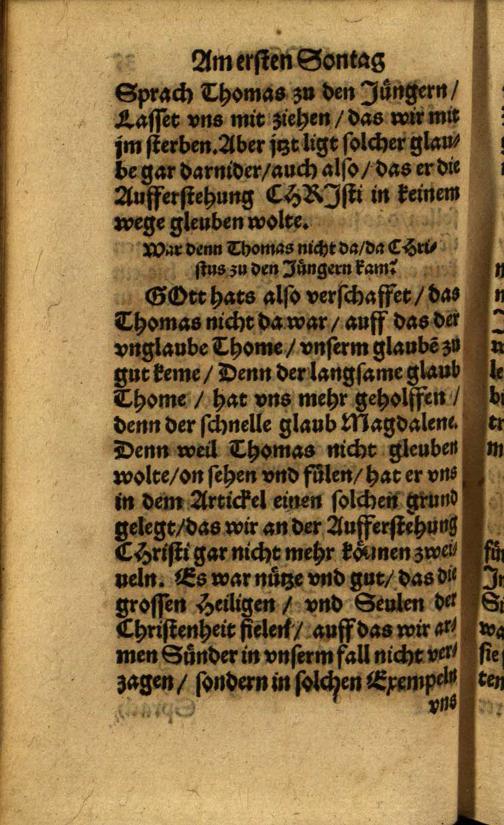 Am ersten Sontag
Sprach Thomas zu den Jüngern /
Lasset vns mit ziehen / das wir mit
jm sterben. Aber jtzt ligt solcher glau⸗
be gar darnider / auch also / das er die
Aufferstehung CHRJsti in keinem
wege gleuben wolte.
War denn Thomas nicht da / da CHri⸗
stus zu den Jüngern kam?
GOtt hats also verschaffet / das
Thomas nicht da war / auff das der
vnglaube Thome / vnserm glaubē zu
gut keme / Denn der langsame glaub
Thome / hat vns mehr geholffen /
denn der schnelle glaub Magdalene.
Denn weil Thomas nicht gleuben
wolte / on sehen vnd fülen / hat er vns
in dem Artickel einen solchen grund
gelegt / das wir an der Aufferstehung
CHristi gar nicht mehr können zwei⸗
ueln. Es war nütze vnd gut / das die
grossen Heiligen / vnd Seulen der
Christenheit fielen / auff das wir ar⸗
men Sünder in vnserm fall nicht ver⸗
zagen / sondern in solchen Exempeln
vns